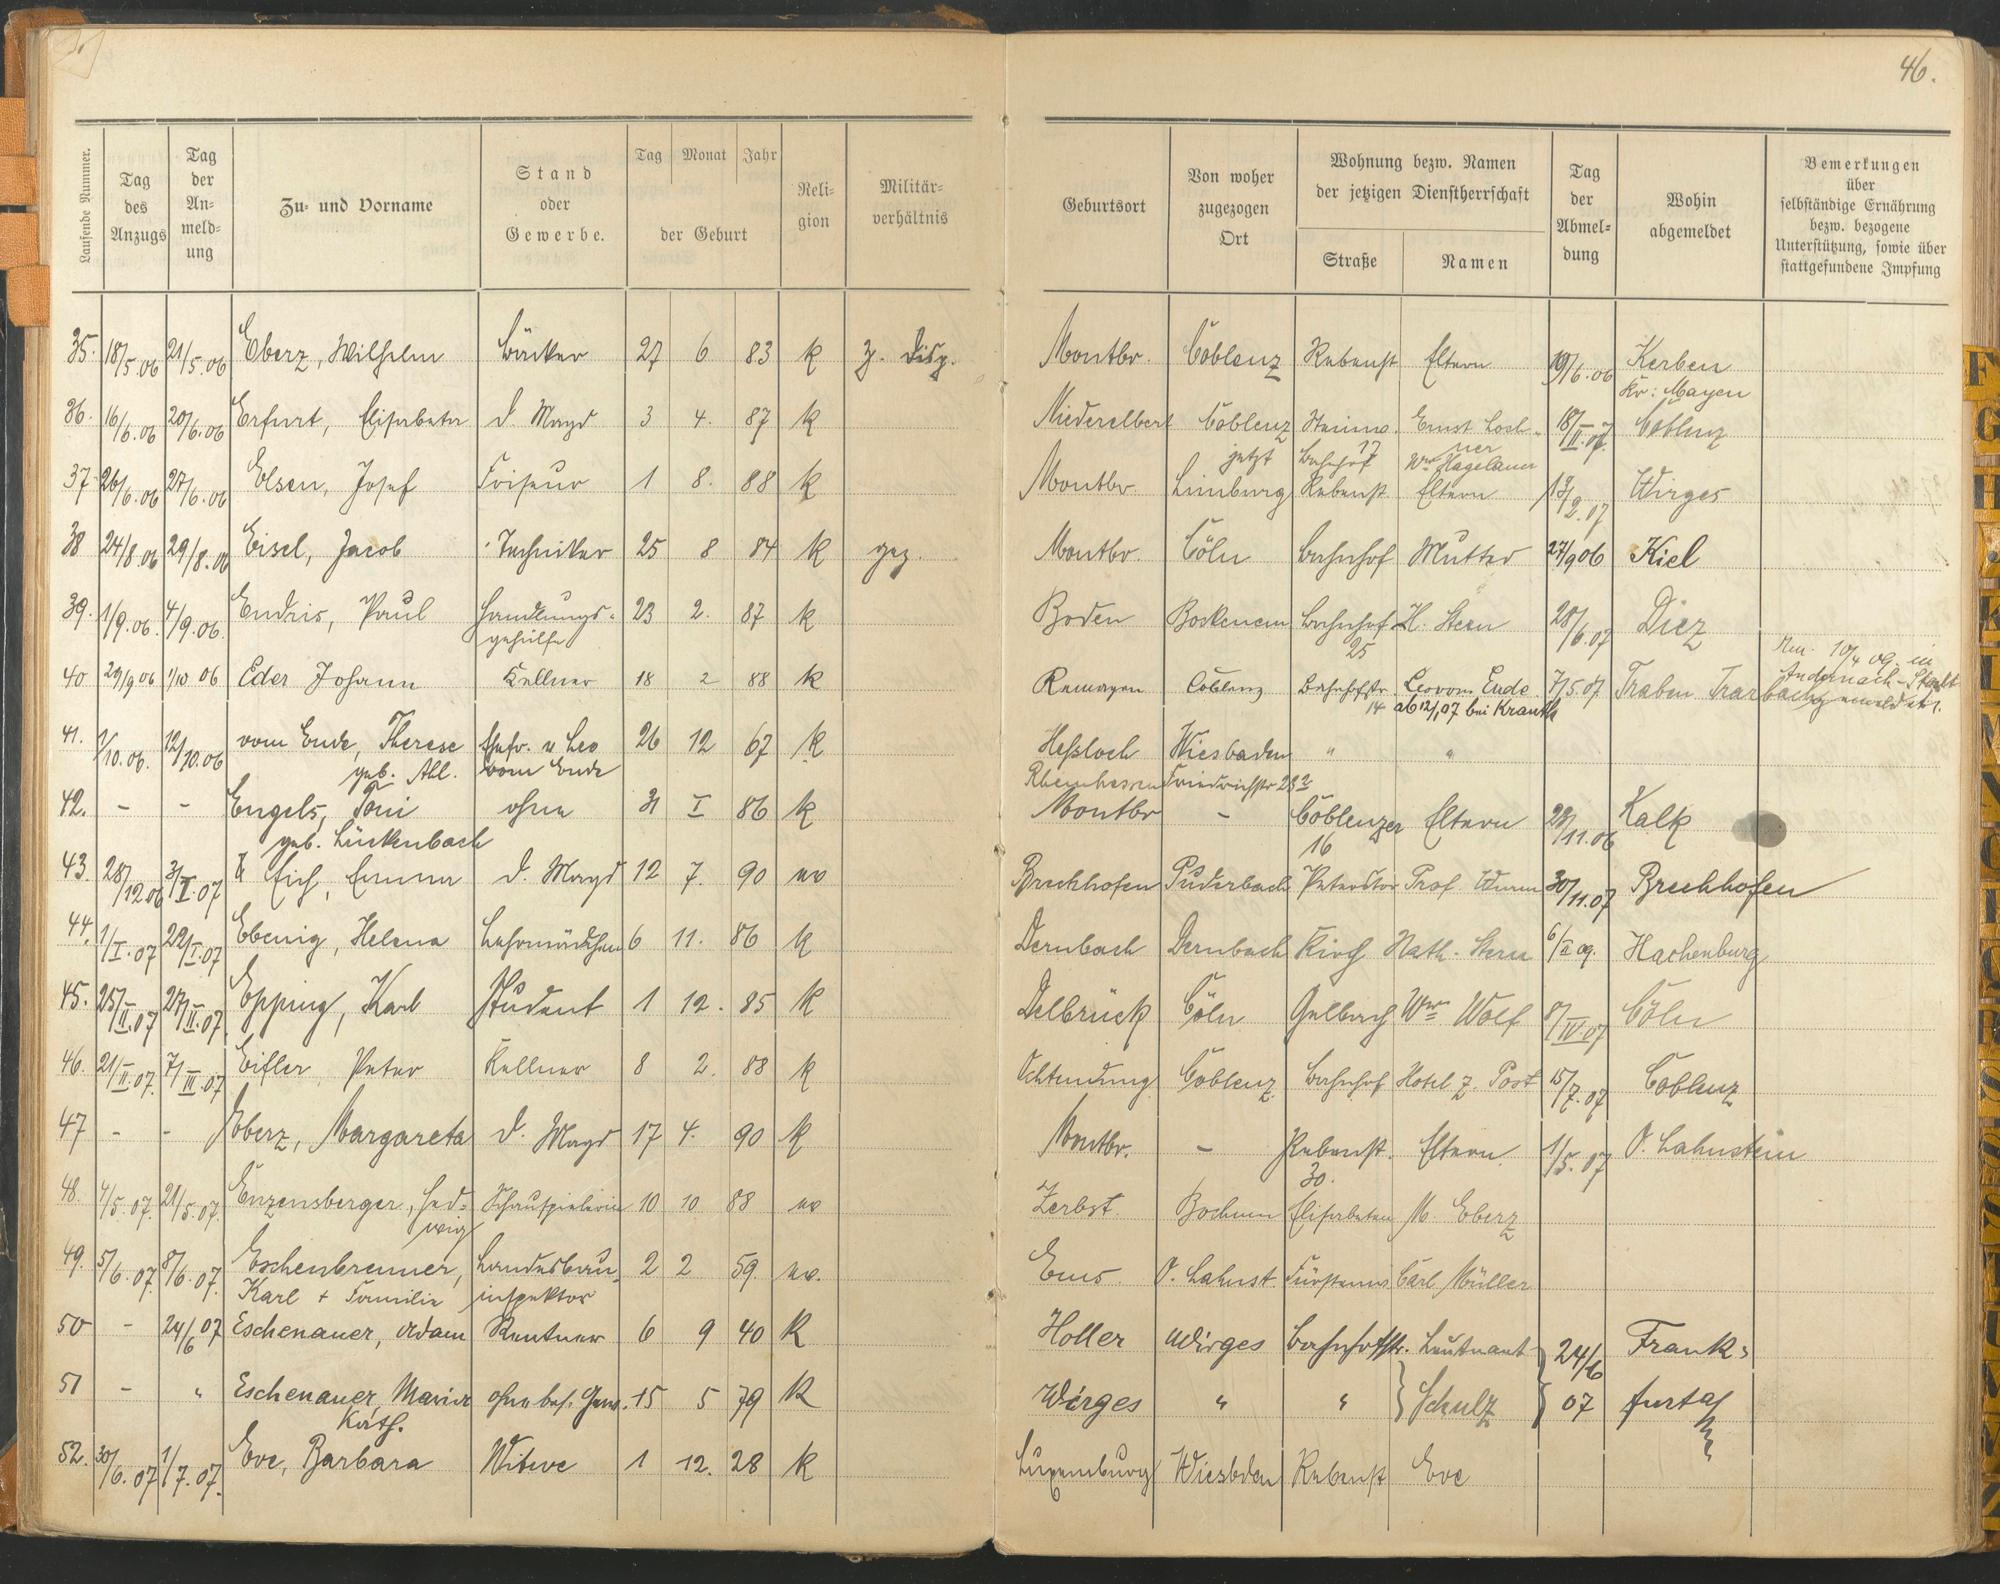 46.
Laufende Nummer. Tag des Anzugs Tag der An= meld= ung Zu= und Vorname Stand oder Gewerbe. Tag Monat Jahr der Geburt Reli= gion Militär= verhältnis Geburtsort Von woher zugezogen Ort Wohnung bezw. Namen der jetzigen Dienstherrschaft Straße Namen Tag der Abmel= dung Wohin abgemeldet Bemerkungen über selbständige Ernährung bezw. bezogene Unterstützung, sowie über stattgefundene Impfung
35. 18/5.06 21/5.06 Eberz, Wilhelm Bäcker 27 6 83 k z. Disp. Montbr. Coblenz Rebenst Eltern 19/6.06 Kerben
Kr: Mayen
36. 16/6.06 20/6.06 Erfurt, Elisabeta d. Magd 3 4. 87 k Niederelbert Coblenz Ernst Losch= 18/II.07. Coblenz
jetzt Bahnhof 17 ner
Wwe Hagelauer
37 26/6.06 27/6.06 Elsen, Josef Friseur 1 8. 88 k Montbr Limburg Rebenst Eltern 13/2.07 Wirges
38 24/8.06 29/8.06 Eisel, Jacob Techniker 25 8 84 k gez. Montbr. Cöln Bahnhof Mutter 27/9 06 Kiel
39. 1/9.06. 4/9.06. Endris, Paul Handlungs= 23 2. 87 k Boden Bockenem Bahnhof H. Stern 28/6.07 Diez
gehülfe 25
40 29/9 06 1/10 06 Eder Johann Kellner 18 2 88 k Remagen Coblenz Bahnhofstr. Leo vom Ende 7/5.07 Traben Trarbach 10/4 09. in Andernach-Stadt gemeldet.
14 ab 12/1 07 bei Krauth
41. 1/10.06. 12/10.06 vom Ende, Therese Ehefr. v Leo 26 12 67 k Heßloch Wiesbaden " "
geb. All. vom Ende Rheinhessen Friedrichstr 28
42. - - Engels, Toni ohne 31 I 86 k Montbr - Coblenzer Eltern 28/11.06 Kalk
geb. Lückenbach 16
43. 28/12 06 3/I.07 Eich, Emma d. Magd 12 7. 90 ev Brechhofen Puderbach Peterstor Prof. Wurm 30/11.07 Brechhofen
44. 1/I.07 22/I.07 Ebenig, Helena Lehrmädchen 6 11. 86 k Dernbach Dernbach Kirch Nath. Stern 6/II 09. Hachenburg
45. 25/II.07 27/II.07. Epping, Karl Student 1 12. 85 k Delbrück Cöln Gelbach Wwe Wolf 8/IV 07 Cöln
46. 21/II.07. 7/III.07 Eifler, Peter Kellner 8 2. 88 k Ochtendung Coblenz Bahnhof Hotel z. Post 15/7.07 Coblenz
47 - - Eberz, Margareta d. Magd 17 4. 90 k Montbr. - Rebenst. Eltern 1/5.07 O. Lahnstein
30.
48. 4/5.07. 21/5.07. Enzensberger, Hed= Schauspielerin 10 10 88 ev Zerbst. Bochum Elisabeten M. Eberz
wig
49. 5/6.07. 8/6.07. Eschenbrenner, Landesbau= 2 2 59. ev. Ems. O. Lahnst. Fürstenw. Carl Müller
Karl + Familie inspektor
50 - 24/6 07 Eschenauer, Adam Rentner 6 9 40 k Holler Wirges Bahnhofstr. Leutnant 24/6 Frank=
51 - " Eschenauer, Maria ohne bes. Gew. 15 5 79 k Wirges " " Schulz 07 furt a/
Kath. M.
52. 30/6.07 1/7.07. Eve, Barbara Witwe 1 12. 28 k Luxemburg Wiesbden Rebenst Eve
F G H J K L M N